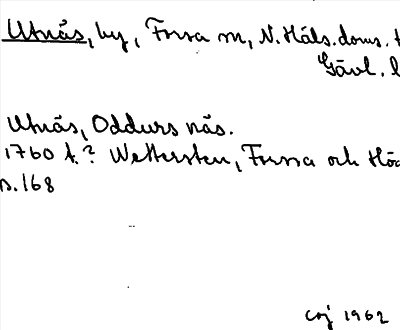 Utnäs, by, Forsa sn, N. Häls. doms.
Gävl. l
Utnäs, Oddurs näs.
1760 t.? Wettersten, Forssa och Hö
s. 168
1962